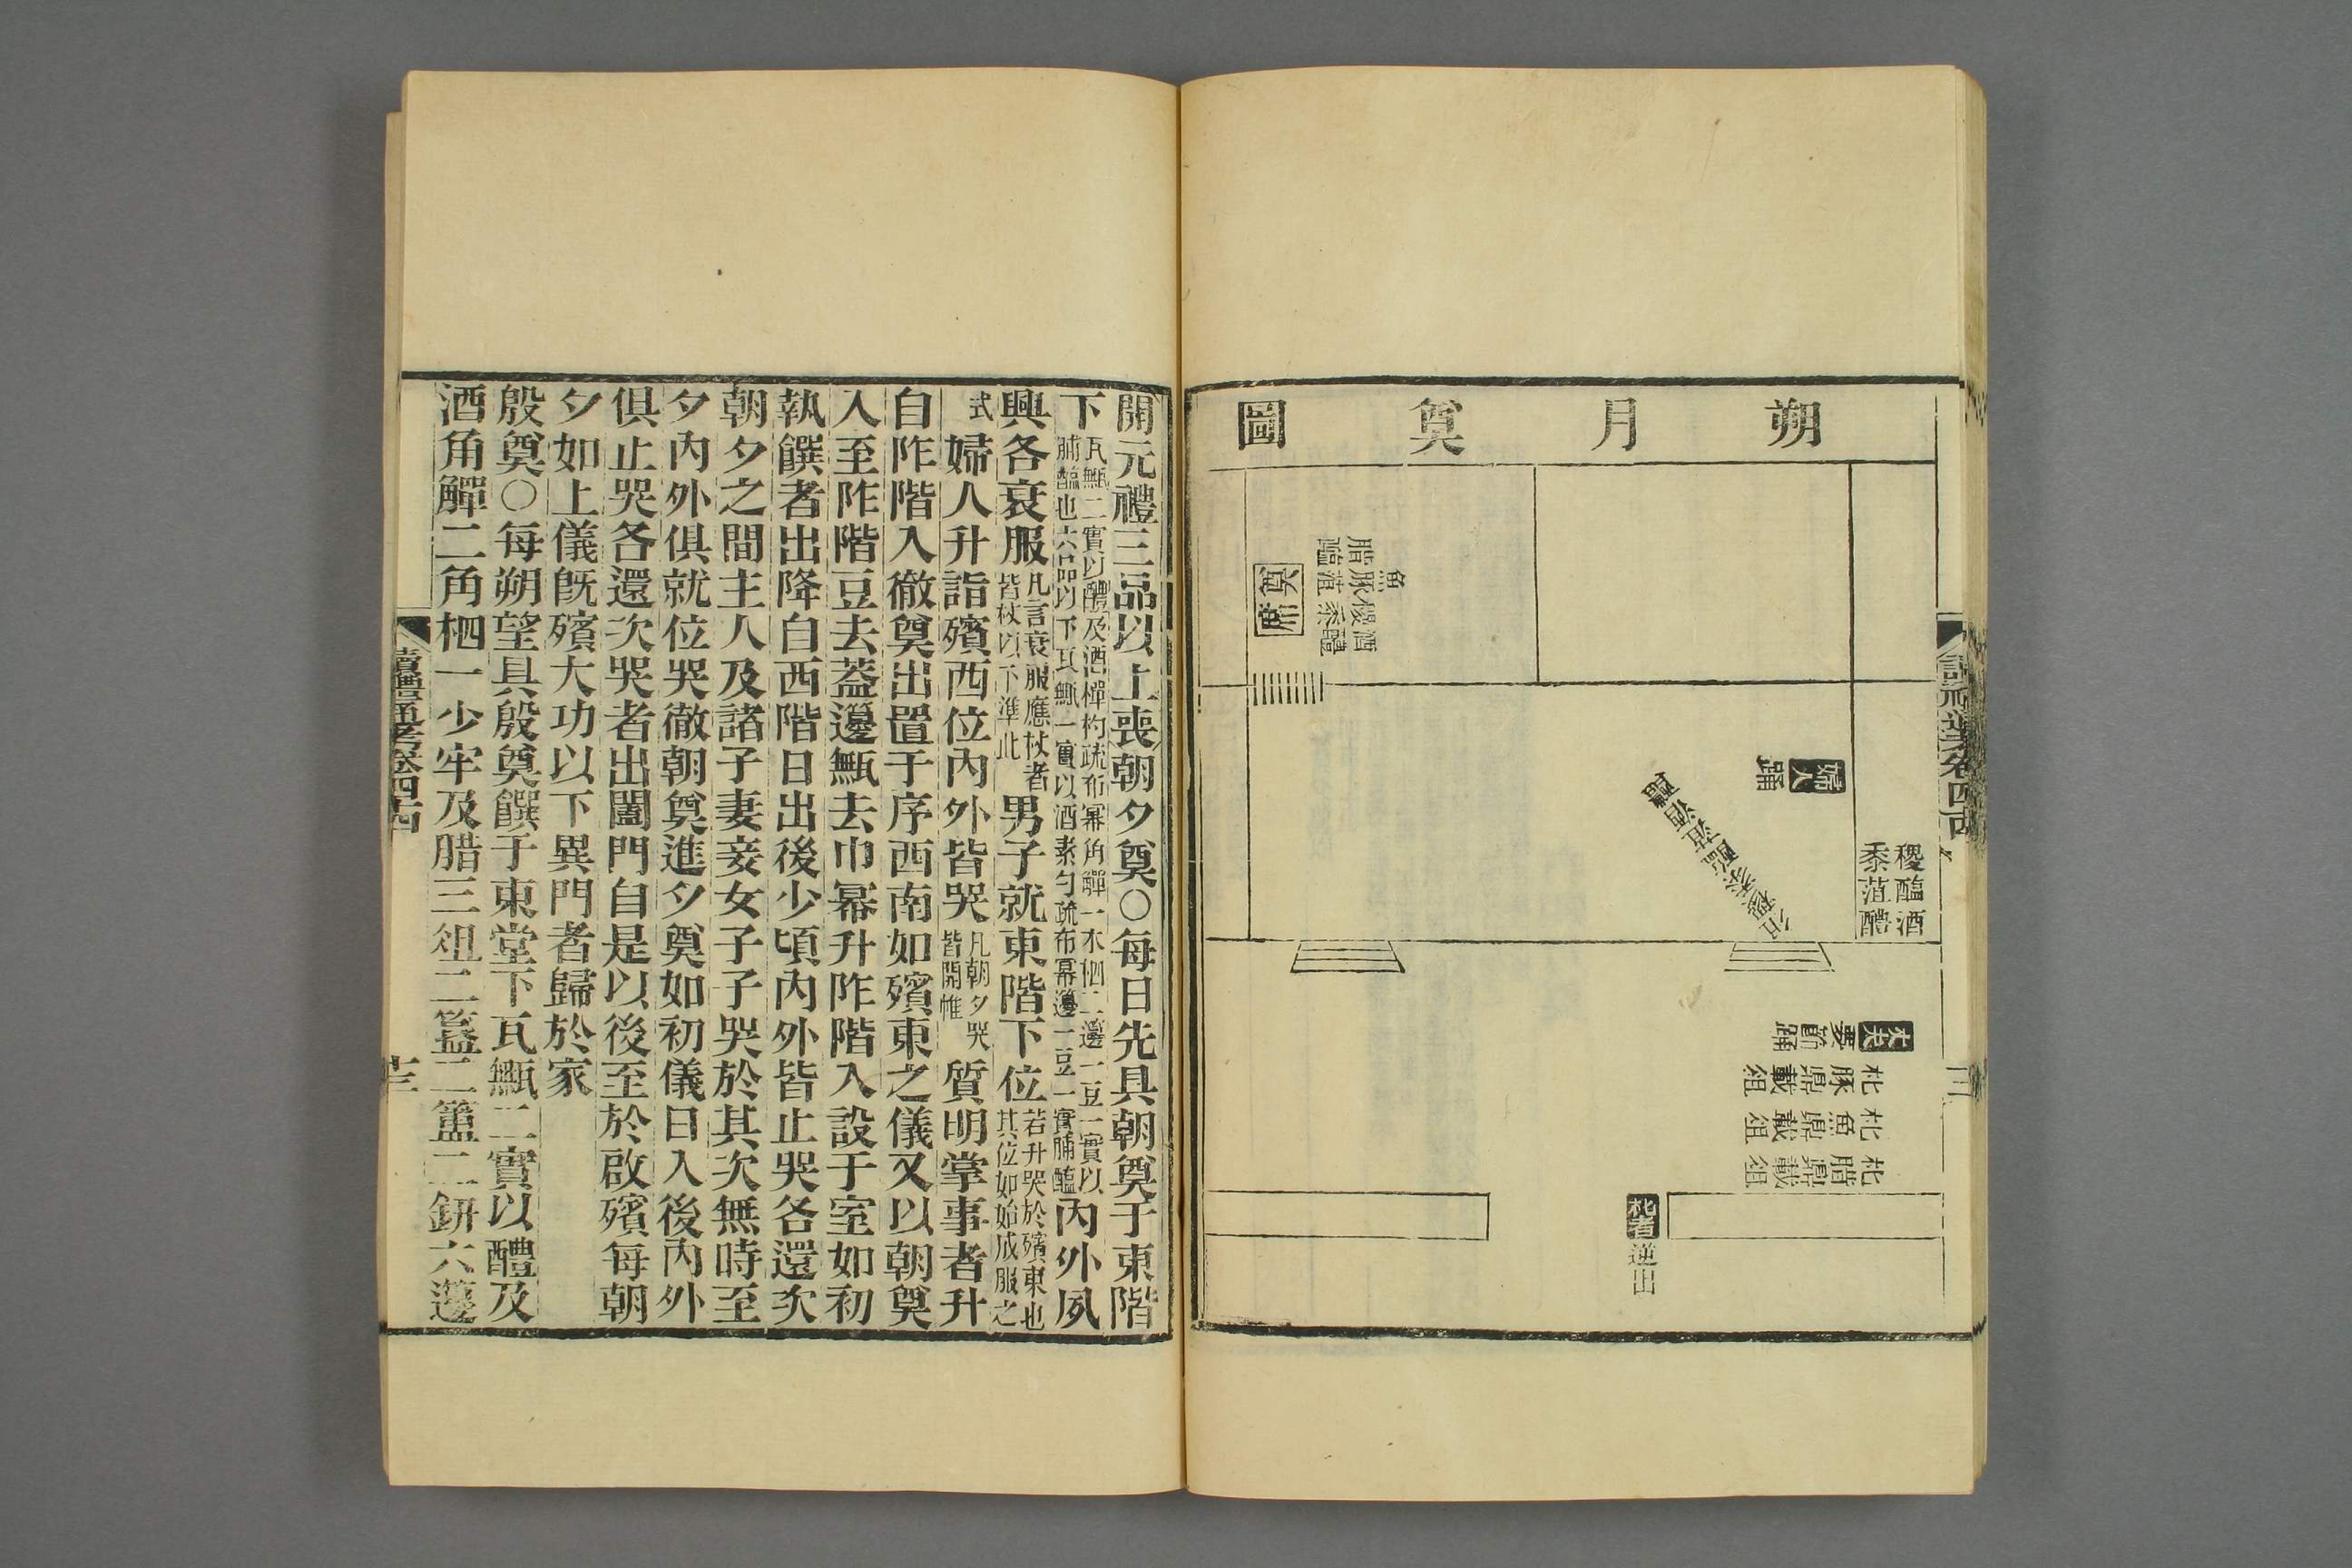 朔月奠圖
奠席
魚
腊豚稷酒
醢菹黍醴
婦人
踊
醴酒菹醢黍稷俎
稷醢酒
黍菹醴
丈夫
要節踊
朼豚鼎載俎
朼魚鼎載俎
朼腊鼎載俎
朼者逆出
開元禮三品以上喪朝夕奠○每日先具朝奠于東階
下瓦甒二實以醴及酒觶杓疏布冪角觶一木柶二籩一豆一實以
脯醢也六品以下瓦甒一實以酒素勺疏布冪籩一豆一實脯醢內外夙
興各衰服凡言衰服應杖者
皆杖以下準此男子就東階下位若升哭於殯東也
其位如始成服之
式婦人升詣殯西位內外皆哭凡朝夕哭
皆開帷質明掌事者升
自阼階入徹奠出置于序西南如殯東之儀又以朝奠
入至阼階豆去蓋籩甒去巾冪升阼階入設于室如初
執饌者出降自西階日出後少頃內外皆止哭各還次
朝夕之間主人及諸子妻妾女子子哭於其次無時至
夕內外俱就位哭徹朝奠進夕奠如初儀日入後內外
俱止哭各還次哭者出闔門自是以後至於啟殯每朝
夕如上儀旣殯大功以下異門者歸於家
殷奠○每朔望具殷奠饌于東堂下瓦甒二實以醴及
酒角觶二角柶一少牢及腊三俎二簋二簠二鉶六籩
讀禮通考卷四四
十三